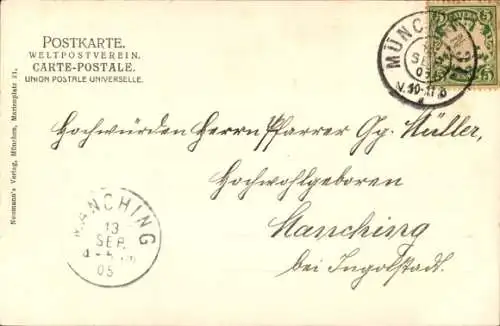 POSTKARTE.
WELTPOSTVEREIN.
CARTE-POSTALE.
UNION POSTALE UNIVERSELLE.
Neumann's Verlag, München, Marienplatz 21.
MÜNCH
SEP
05
V.10-11
BAYERN
5 5
5
Hochwürden Herrn Pfarrer Gg. Müller,
Hochwohlgeboren
Manching
bei Ingolstadt.
MANCHING
13
SEP.
05